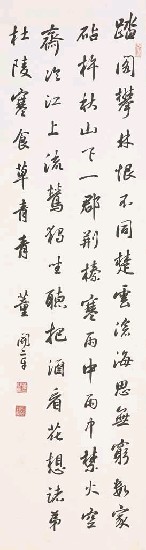 踏閣攀林恨不同楚雲滄海思無窮數家
砧杵秋山下一郡荊榛寒雨中雨中禁火空
齋冷江上流鶯獨坐聽把酒看花想諸弟
杜陵寒食草青青 董開章